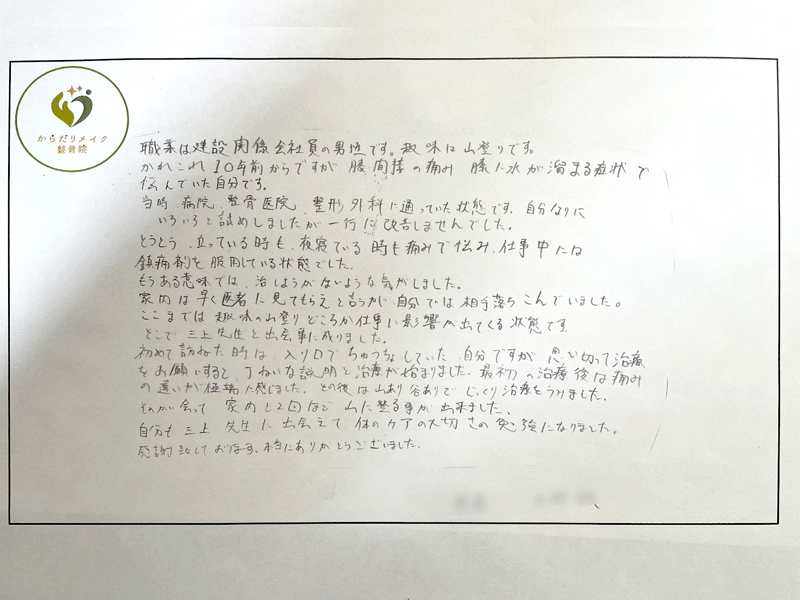 からだリメイク
整骨院
職業は建設関係会社員の男性です。趣味は山登りです。
かれこれ10年前からですが 膝間接の痛み 膝に水が溜まる症状で
悩んでいた自分です。
当時、病院、整骨医院、整形外科に通っていた状態です。自分なりに
いろいろと試めしましたが一行に改善しませんでした。
とうとう、立っている時も、夜寝ている時も痛みで悩み、仕事中には
鎮痛剤を服用している状態でした。
もうある意味では、治しようがないような気がしました。
家内は早く医者に見てもらえと言うが、自分では相手落ちこんでいました。
ここまでは趣味の山登りどころか仕事に影響が出てくる状態です
そこで三上先生と出会事に成りました。
初めて訪ねた時は、入り口でちゅうちょしていた、自分ですが 思い切って治療
をお願いすると、丁ねいな説明と治療が始まりました。最初の治療後は痛み
の違いが極端に感じました。その後は山あり谷ありでじっくり治療をうけました。
そのかい会って 家内と2回ほど 山に登る事が出来ました。
自分も三上先生に出会えて 体のケアの大切さの勉強になりました。
感謝致しております。本当にありがとうございました。